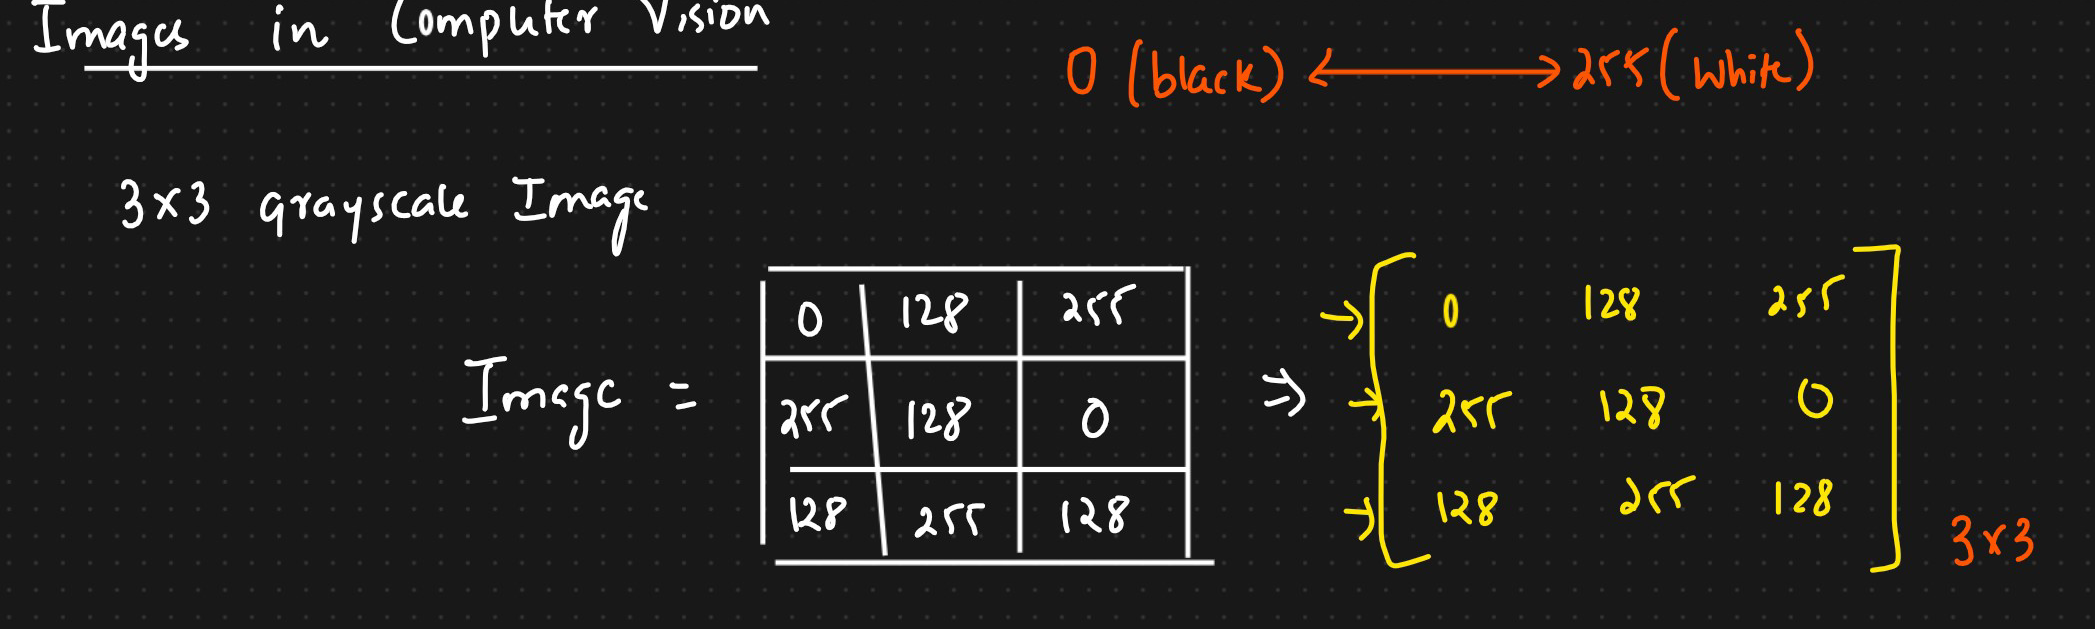 Images in Computer Vision
0 (black) ←→ 255 (White)
3×3 grayscale Image
Image =
0 128 255
255 128 0
128 255 128
⇒
→ [ 0 128 255
→ 255 128 0
→ 128 255 128 ]
3×3